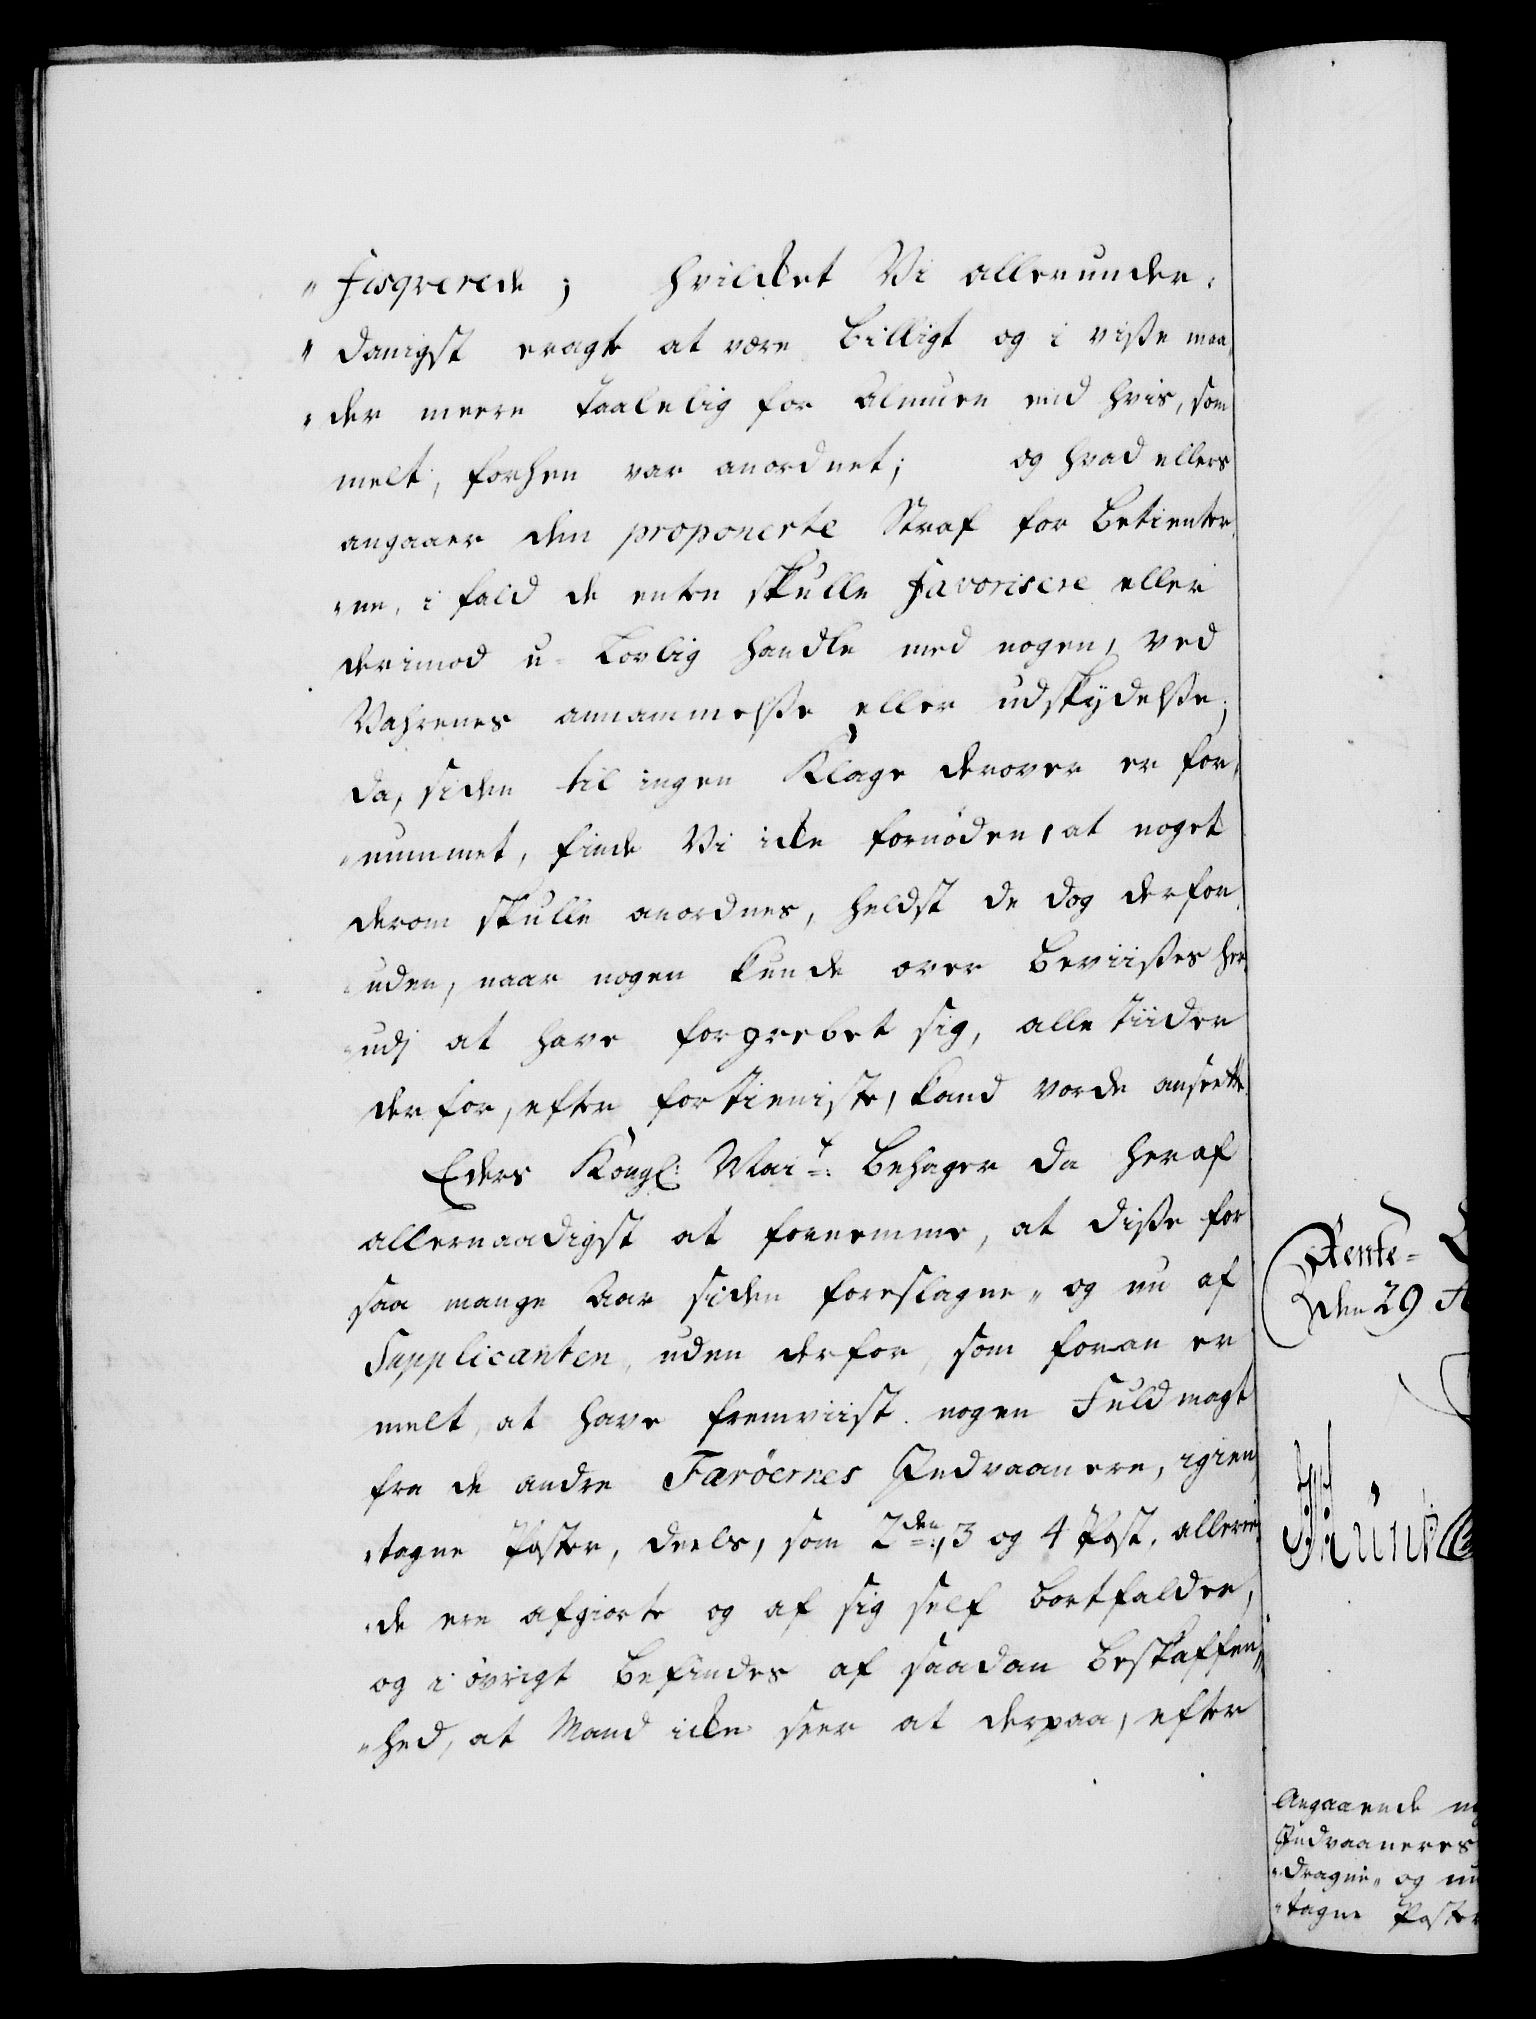 "fisqverede; hvilcket Vi allerunder-
"danigst eragte at være billigt og i visse maa-
"der meere taalelig for Almuen end hvis, som
melt, forhen var anordnet; og hvad ellers
angaaer den proponerte Straf for Betienter-
"ne, i fald de enten skulle favorisere eller
derimod u-lovlig handle med nogen, ved
Vahrenes annammelse eller udskydelse;
da, siden til ingen Klage derover er for-
"nummet, finde Vi icke fornöden, at noget
derom skulle anordnes, heldst de dog derfor-
"uden, naar nogen kunde over beviises her-
"udj at have forgrebet sig, alle tiider
derfor, efter fortieniste, kand vorde anseette.
Eders Kongl: Mait: behager da heraf
allernaadigst at fornemme, at disse for
saa mange Aar siden foreslagne„ og nu af
Supplicanten, uden derfor, som foran er
melt, at have fremviist nogen Fuldmagt
fra de andre Færöernes Indvaanere, igien-
"tagne Poster, deels, som 2den, 3 og 4 Post, alleree-
"de ere afgiorte og af sig self bortfalder,
og i övrigt befindes af saadan beskaffen-
"hed, at Mand icke seer at derpaa, efter
Rente-
den 29
Angaaende
Indvaaneres
"dragne„ og nu
"tagne Poster